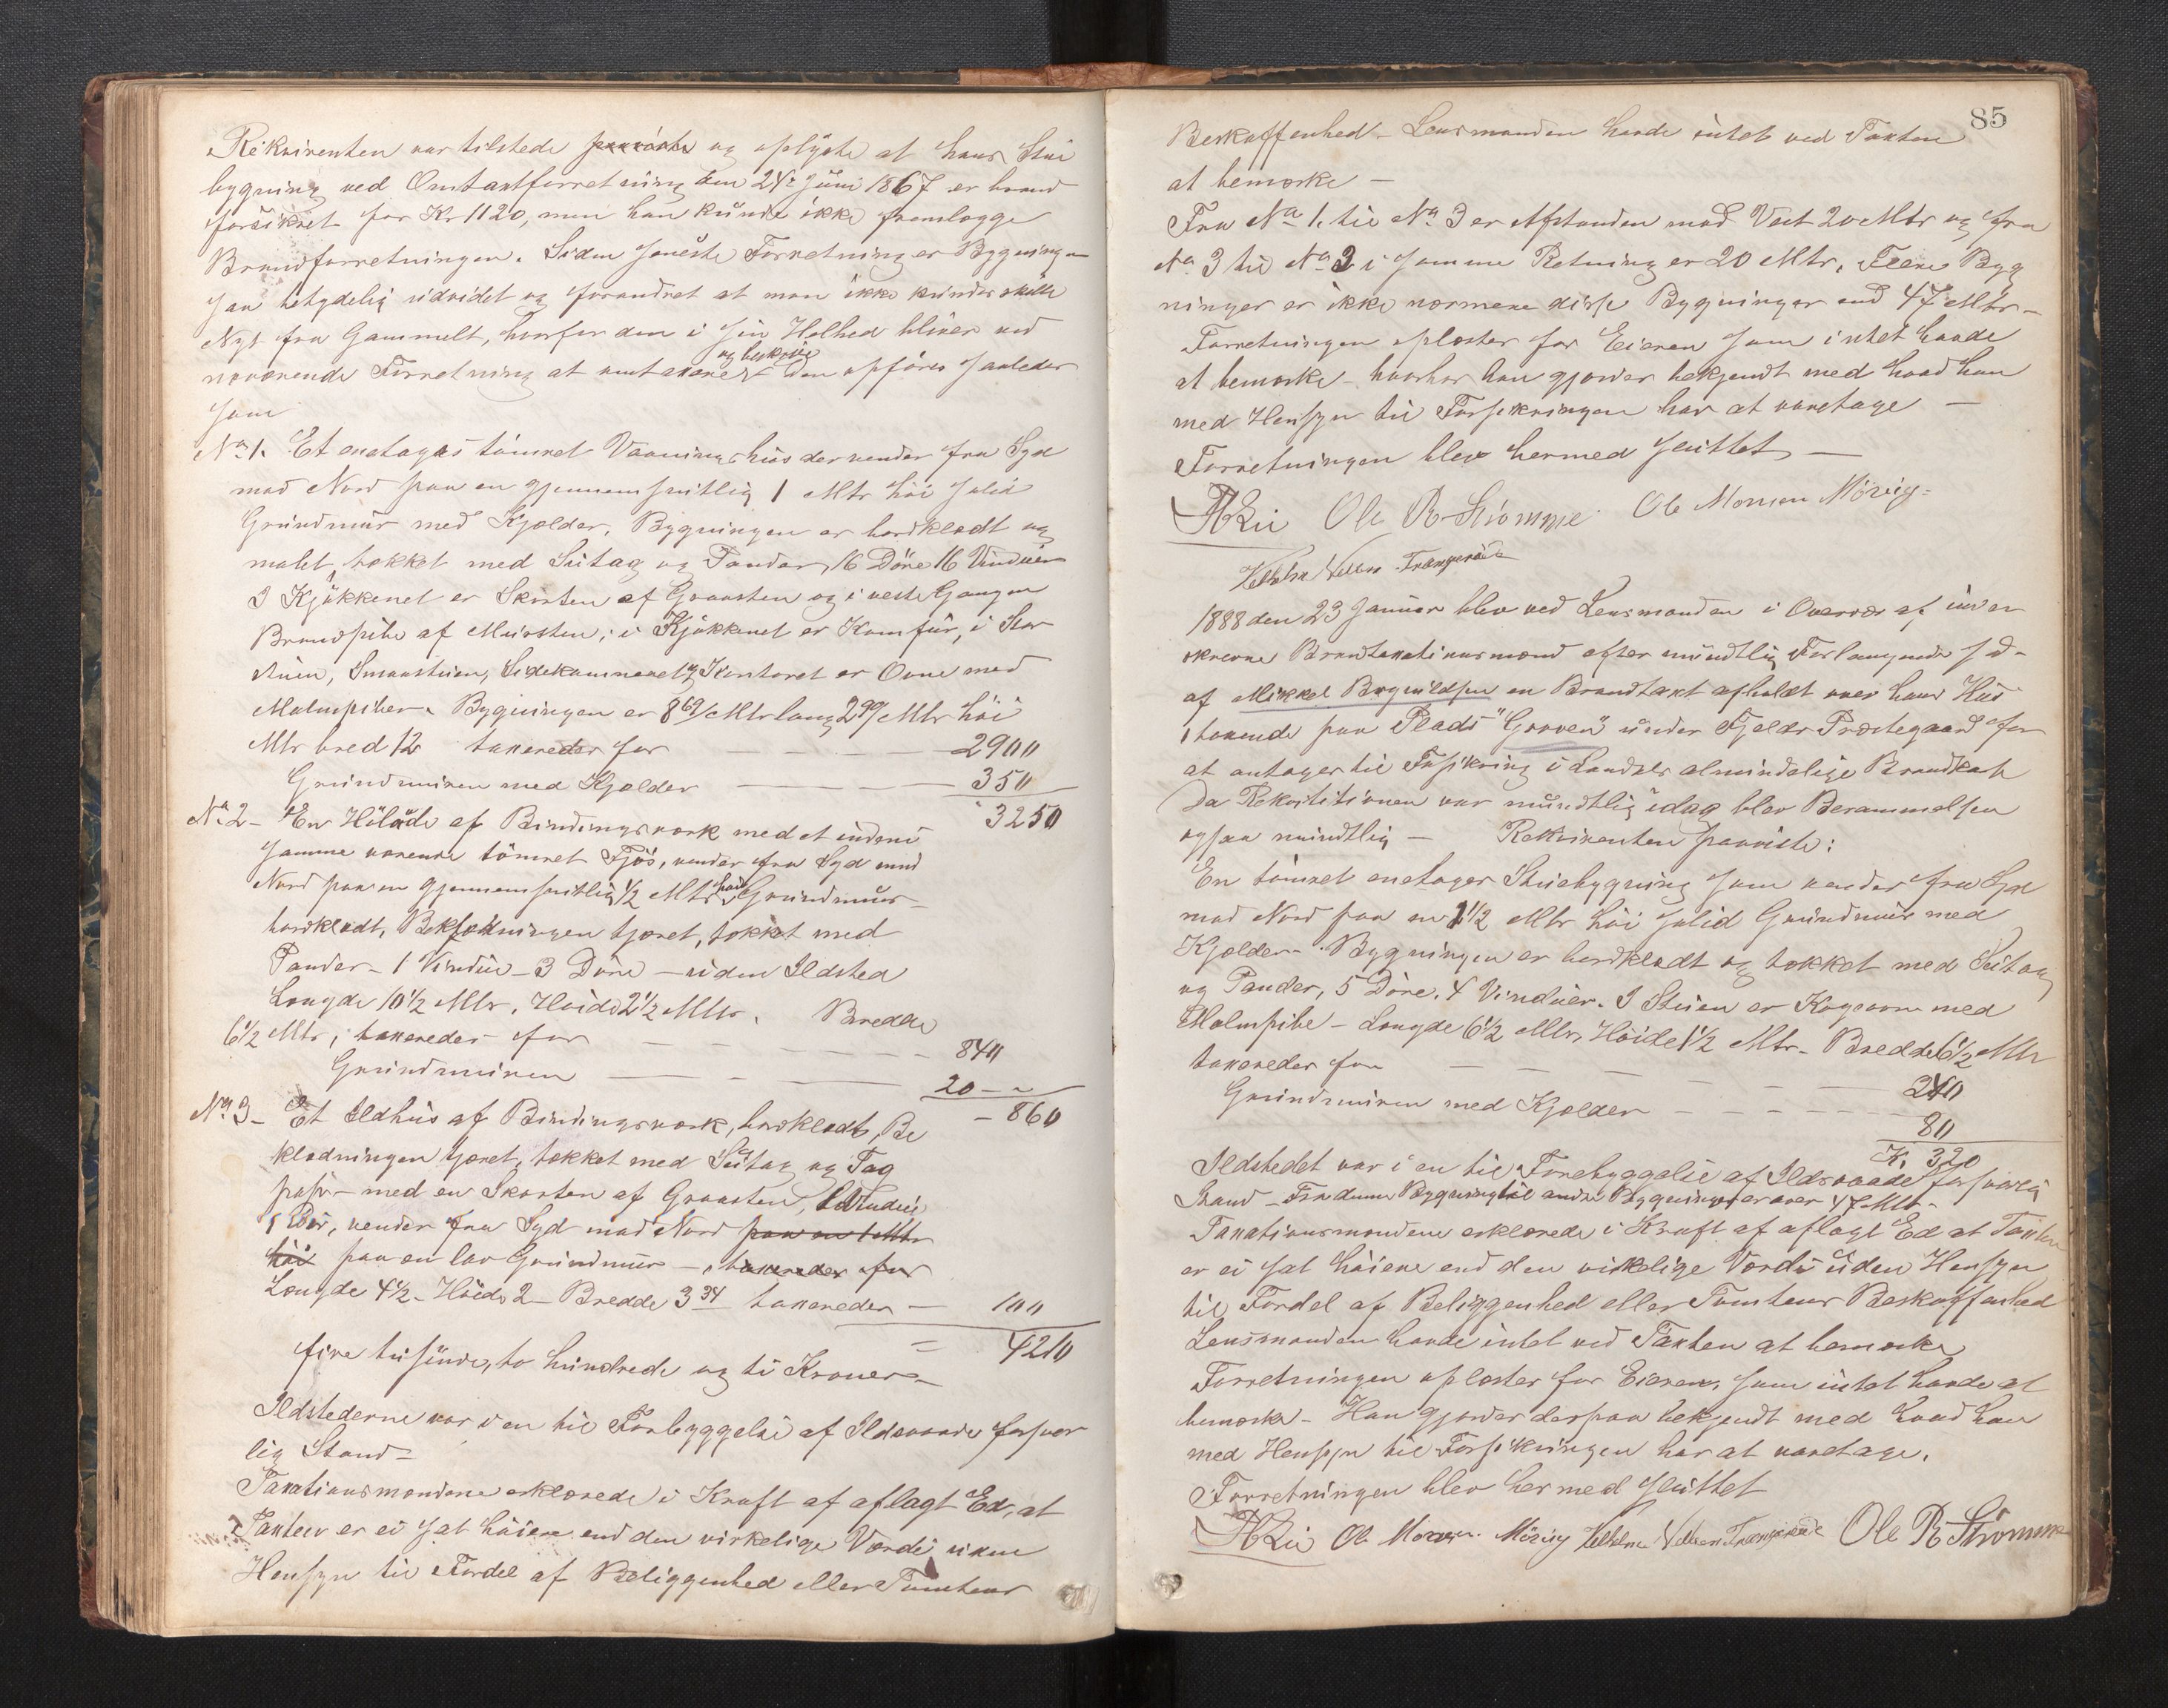 Rekvirenten var tilstede paaviste og oplyste at hans Stue
bygning ved Omtaxtforretning den 24de Juni 1867 er brand
forsikret for Kr 1120, men han kunde ikke fremlægge
Brandforretningen. Siden seneste Forretning er Bygningen
saa betydelig udvidet og forandret at man ikke kunde skille
Nyt fra Gammelt, hvorfor den i sin Helhed bliver ved
nærværende Forretning at omtaxere og beskrive den opføres saaledes
som
No 1. Et enetages tømret Vaaningshus der vender fra Syd
mod Nord paa en gjennemsnitlig 1 Mtr høi solid
Grundmur med Kjelder, Bygningen er bordklædt og
malet, tækket med Sutag og Pander, 16 Døre 16 Vinduer
I Kjøkkenet er Skorsten af Graasten og i vestre Gangen
Brandpibe af Mursten; i Kjøkkenet er Komfur, i Stor
stuen, Smaastuen, Sidekammeret og Kontoret er Ovne med
Malmpiber. Bygningen er 8 69/ Mtr lang 2 99/ Mtr høi
Mtr bred 12 taxeredes for — — — 2900
Grundmuren med Kjelder — — 350
3250
No 2 - En Høladе af Bindingsværk med et indeni
samme værende tømret Fjøs, vender fra Syd mod
Nord paa en gjennemsnitlig 1/2 Mtr høi Grundmur -
bordklædt, Beklædningen tjæret, tækket med
Pander - 1 Vindue - 3 Døre - uden Ildsted
Længde 10 1/2 Mtr, Høide 2 1/2 Mtr. Bredde
6 1/2 Mtr; taxeredes for — — — 840
Grundmuren — — — 20 -
- 860
No 3 - Et Ildhus af Bindingsværk, bordklædt, Be
klædningen tjæret, tækket med Sutag og Tag
med en Skorsten af Graasten, 1 Vindue
1 Dør, vender fra Syd mod Nord paa en 1 Mtr
høi paa en lav Grundmur - taxeredes for
Længde 4 1/2 - Høide 2 - Bredde 3 34 taxeredes — 100
= 4210
fire tusinde, to hundrede og ti Kroner -
Ildstederne var i en til Forebyggelse af Ildsvaade forsvar
lig Stand -
Taxationsmændene erklærede i Kraft af aflagt Ed, at
Taxten er ei sat høiere end den virkelige Værdi uden
Hensyn til Fordel af Beliggenhed eller Tomtens
85
Beskaffenhed - Lensmanden havde intet ved Taxten
at bemærke —
Fra No 1. til No 3 er Afstanden mod Vest 20 Mtr og fra
No 3 til No 2 i samme Retning er 20 Mtr, Flere Byg
ninger er ikke nærmere disse Bygninger end 47 Mtr -
Forretningen oplæstes for Eieren som intet havde
at bemærke - hvorhos han gjordes bekjendt med hvad han
med Hensyn til Forsikringen har at varetage —
Forretningen blev hermed sluttet —
Ole R Strømme Ole Monsen
1888 den 23 Januar blev ved Lensmanden i Overvær af under
skrevne Brandtaxationsmænd efter mundtlig Forlangende s d-
af Mikkel Bøgvildsen en Brandtaxt afholdt over hans Hus
staaende paa Plads "Groven" under Fjelds Præstegaard for
at antages til Forsikring i Landets almindelige Brandkasse
Da Rekvisitionen var mundtlig idag blev Berammelsen
ogsaa mundtlig — Rekvirenten paaviste:
En tømret enetages Stuebygning som vender fra Syd
mod Nord paa en 1 1/2 Mtr høi solid Grundmur med
Kjelder. Bygningen er bordklædt og tækket med Sutag
og Pander, 5 Døre, 4 Vinduer. I Stuen er Kogeovn med
Malmpibe - Længde 6 1/2 Mtr, Høide 1 1/2 Mtr - Bredde 6 1/2 Mtr
taxeredes for — — — 240
Grundmuren med Kjelder — — — 80
K. 320
Ildstedet var i en til Forebyggelse af Ildsvaade forsvarlig
Stand - Fra denne Bygning til andre Bygninger er over 47 Mtr -
Taxationsmændene erklærede i Kraft af aflagt Ed at Taxten
er ei sat høiere end den virkelige Værdi uden Hensyn
til Fordel af Beliggenhed eller Tomtens Beskaffenhed
Lensmanden havde intet ved Taxten at bemærke
Forretningen oplæstes for Eieren, som intet havde at
bemærke - Han gjordes derpaa bekjendt med hvad han
med Hensyn til Forsikringen har at varetage.
Forretningen blev hermed sluttet
Ole Monsen Ole R Strømme